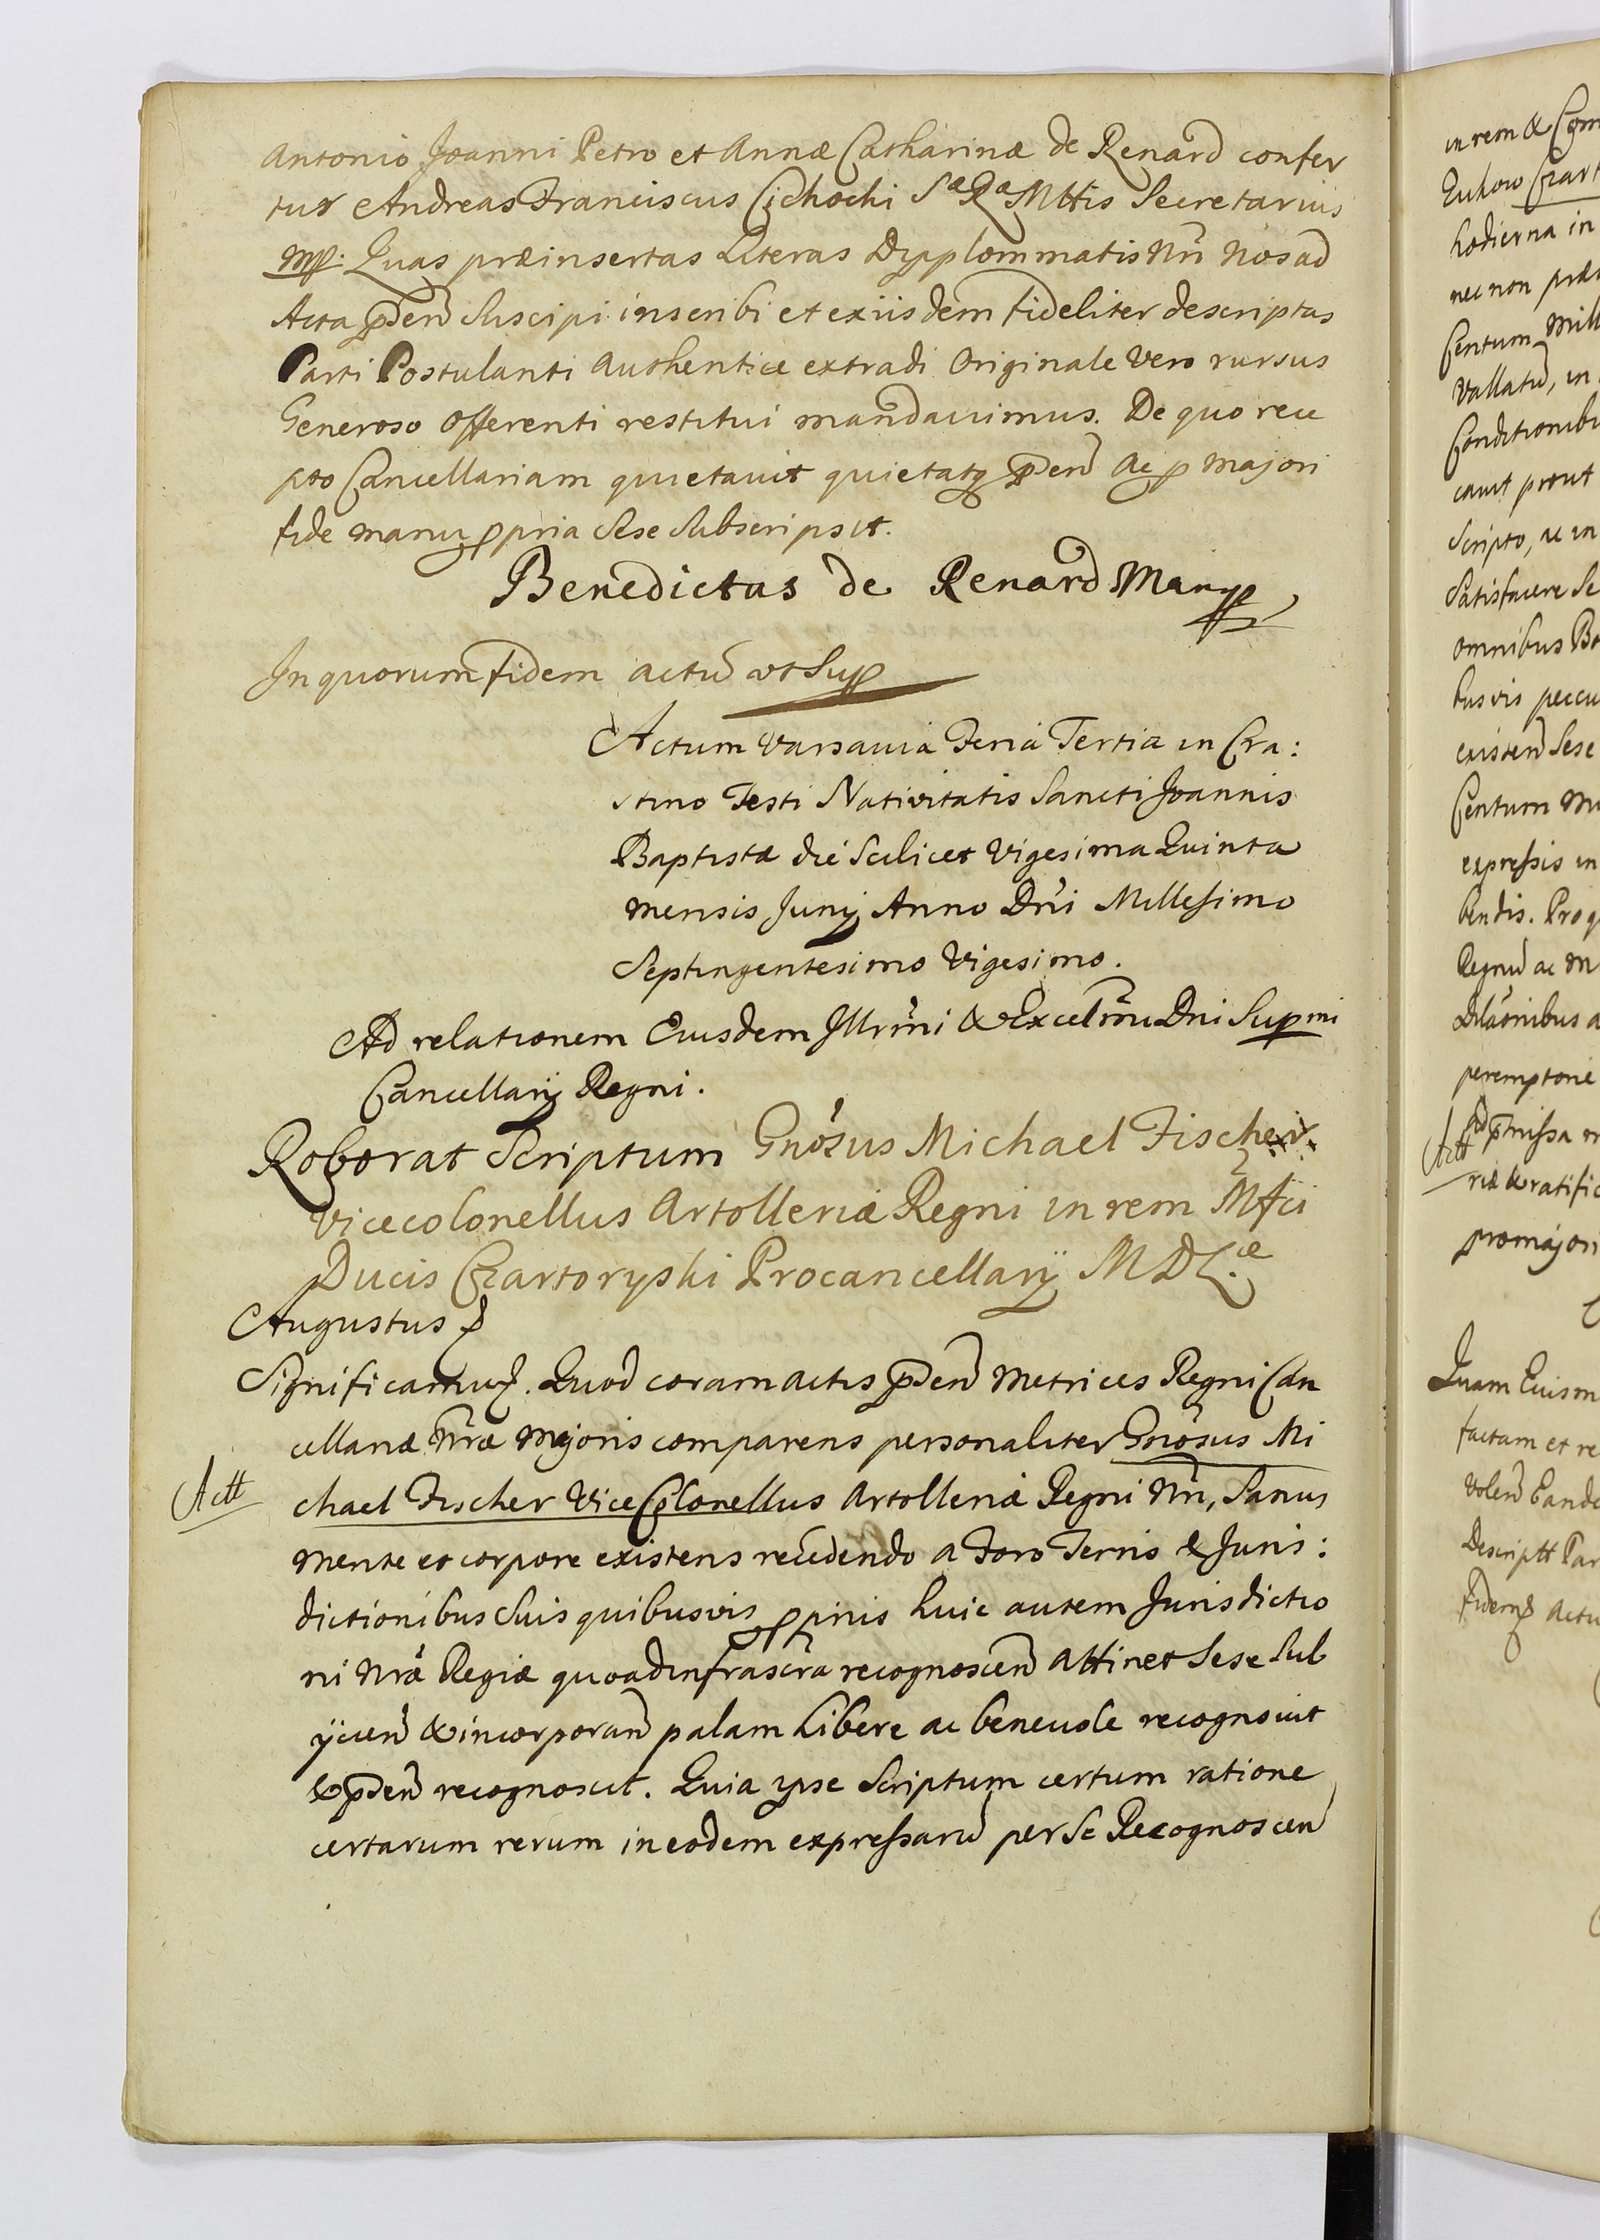 Antonio Joanni Petro et Annæ Catharinæ de Renard confer
tur Andreas Franciscus Cichocki Sæ Ræ Mttis Secretarius
mp: Quas præinsertas Literas Dypplommatis Nri Nos ad
Acta pden Suscipi inscribi et ex iisdem fideliter descriptas
Parti Postulanti Authentice extradi Originale Vero rursus
Generoso Offerenti restitui mandavimus. De quo rece
pto Cancellariam quietavit quietatq pden Ac p majori
fide manu ppria Sese Subscripsit.
Benedictus de Renard Manu pp
In quorum fidem actũ ut Sup
Actum Varsaviæ Feria Tertia in Cra:
stino Festi Nativitatis Sancti Joannis
Baptistæ die Scilicet Vigesima Quinta
mensis Junij Anno Dni Millesimo
Septingentesimo Vigesimo.
Ad relationem Eiusdem Illrmi & Excellmi Dni Supmi
Cancellarij Regni.
Roborat Scriptum Gnosus Michael Fischer
Vicecolonellus Artolleriæ Regni in rem Mfci
Ducis Czartoryski Procancellarij M D L.æ
Augustus
Significamus. Quod coram actis pden Metrices Regni Can
cellariæ Nræ Majoris comparens personaliter Gnosus Mi
Actt
chael Fischer Vice Colonellus Artolleriæ Regni Nri, Sanus
mente et corpore existens recedendo a Foro Terris & Juris:
dictionibus Suis quibusvis ppriis huic autem Jurisdictio
ni Nræ Regiæ quoad infrascra recognoscen attinet Sese Sub
ijcien & incorporan palam libere ac benevole recognovit
& pden recognoscit. Quia ipse Scriptum certum ratione
certarum rerum in eodem expressarũ per Se Recognoscen
in rem & Com
Zukow Czart
hodierna in
nec non præ
Centum Mill
Vallatũ, in
Conditionibu
cavit prout
Scripto, ac in
Satisfacere Se
omnibus Bo
busvis peccu
existen Sese
Centum Mi
expressis in
bendis. Pro q
Regnũ ac M
Dilaonibus a
peremptorie
Actt
riæ & ratific
pro majori
Quam Euism
factam et re
Volen Eande
Descriptt Par
fidem Actu